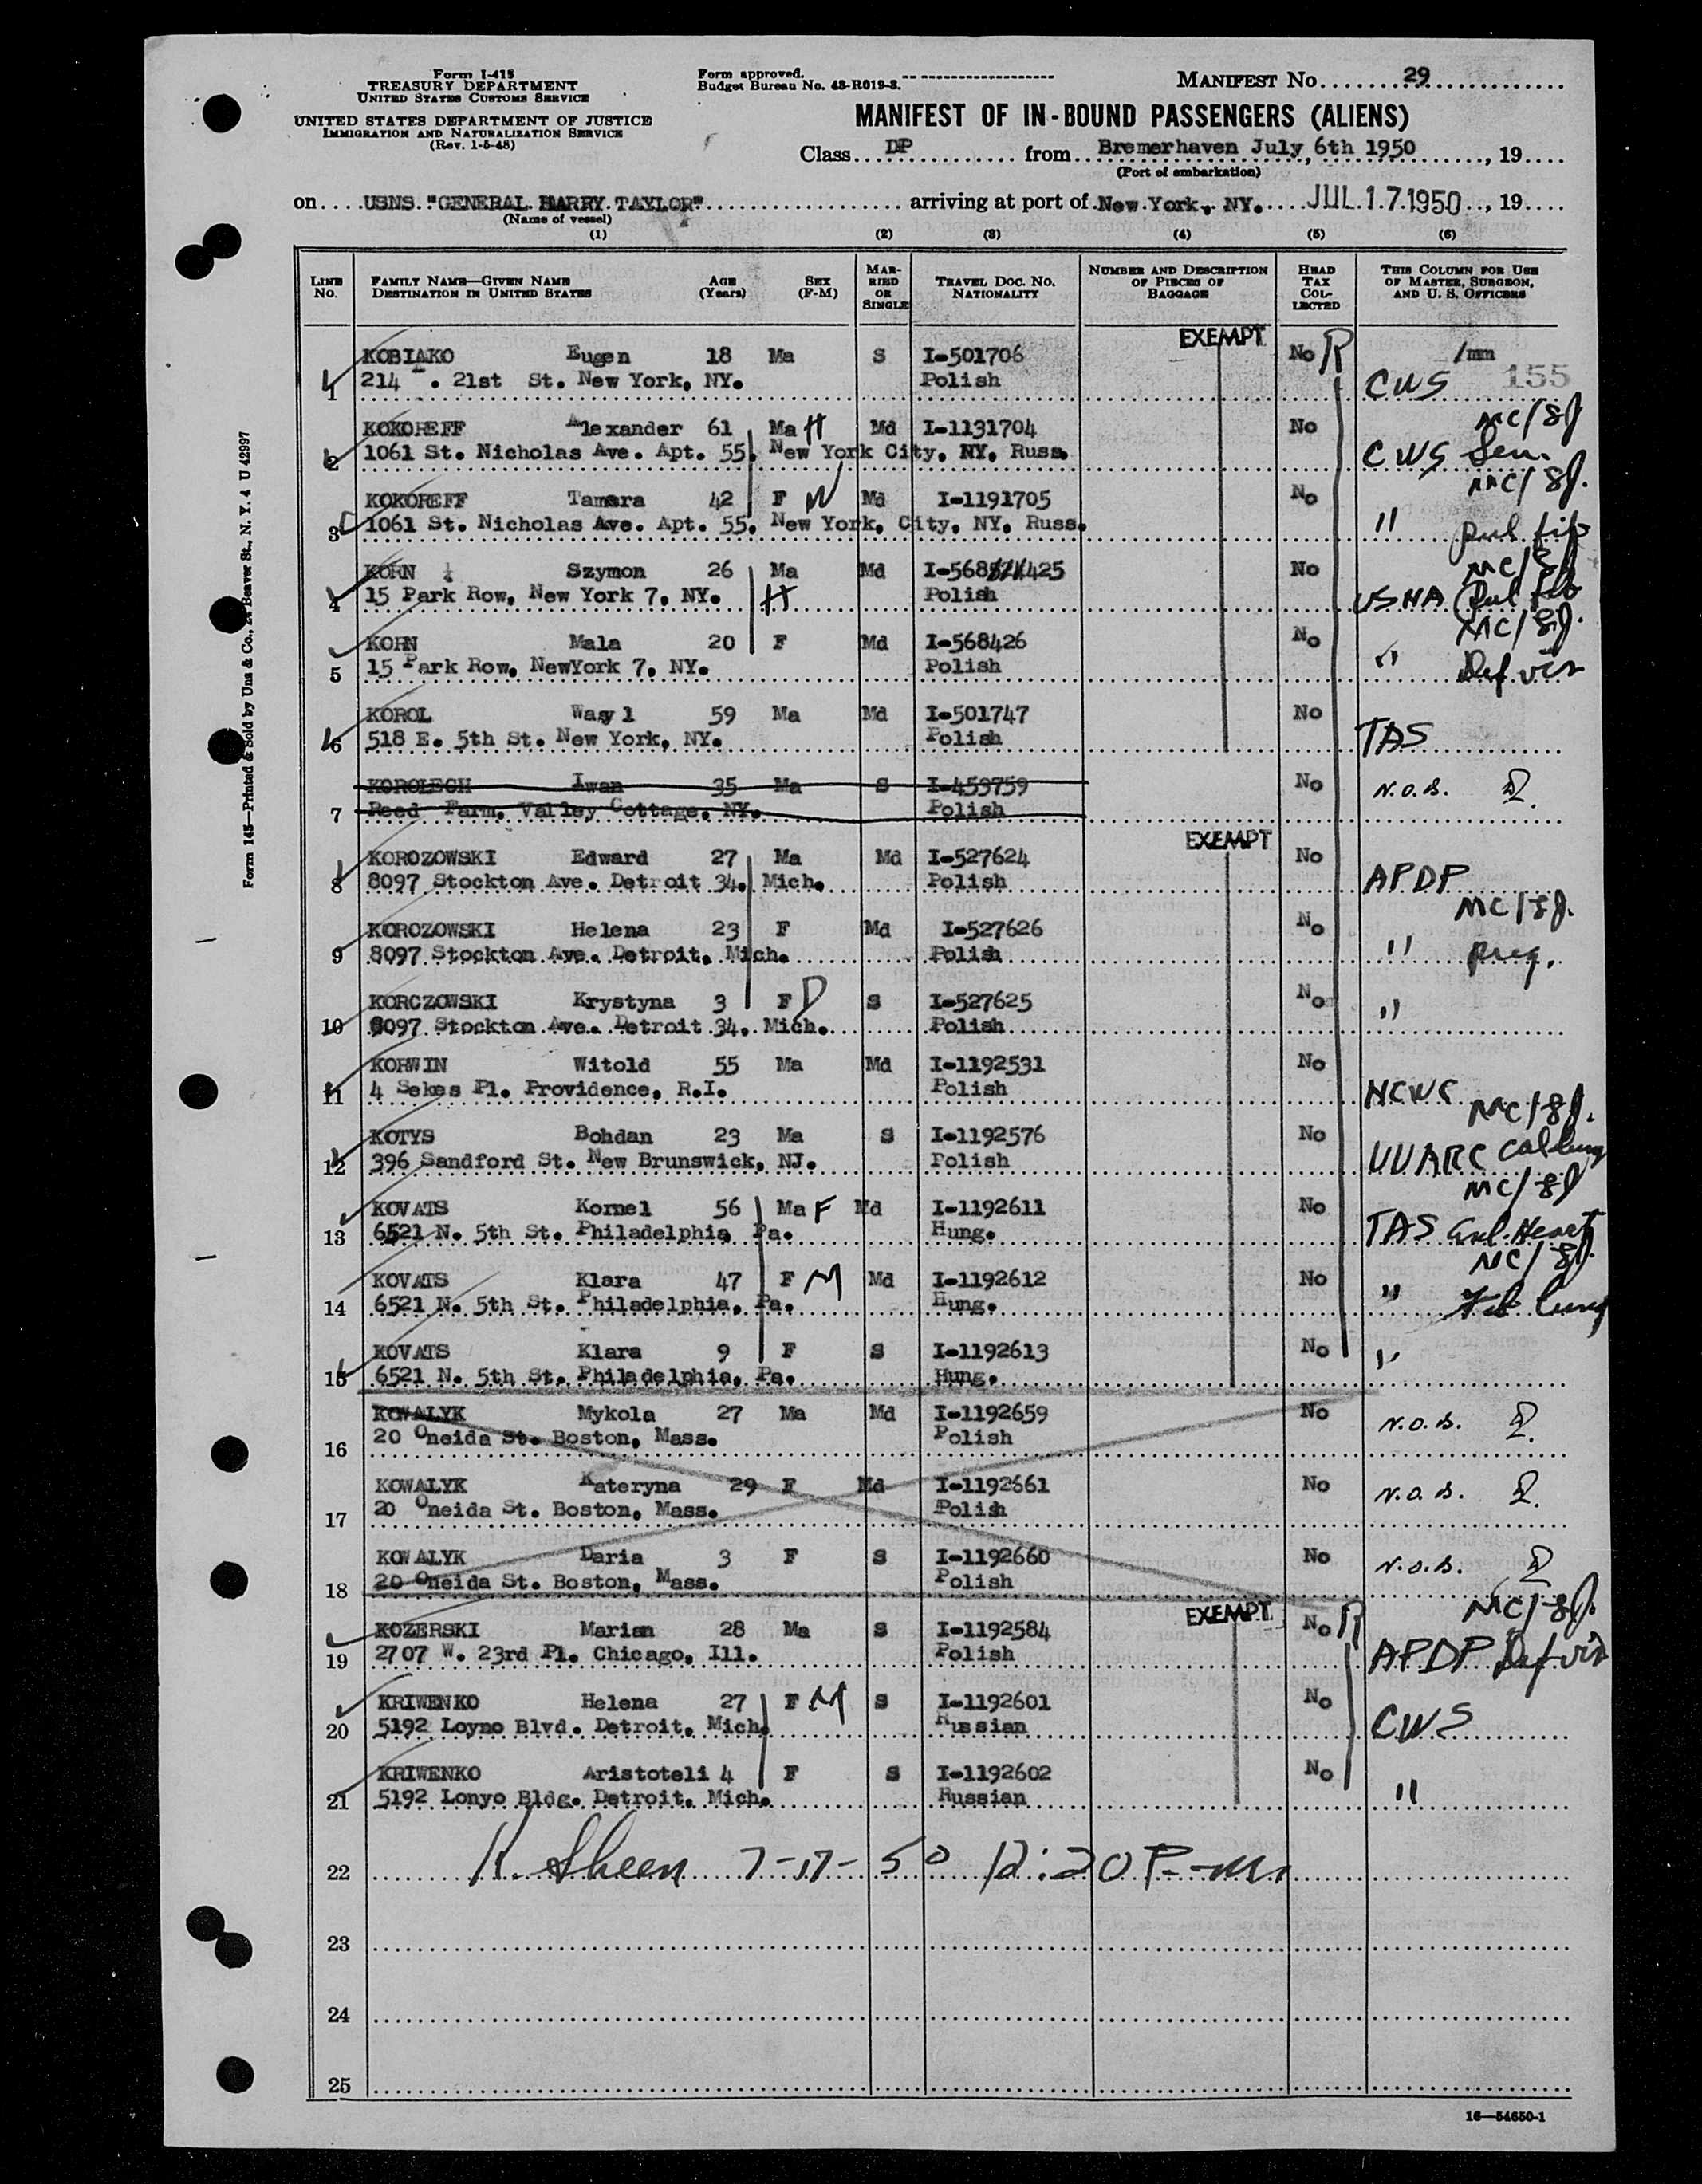 Form I-415
TREASURY DEPARTMENT
UNITED STATES CUSTOMS SERVICE
UNITED STATES DEPARTMENT OF JUSTICE
IMMIGRATION AND NATURALIZATION SERVICE
(Rev. 1-5-48)
Form approved.
Budget Bureau No. 43-R019-3.
MANIFEST No. 29
MANIFEST OF IN-BOUND PASSENGERS (ALIENS)
Class DP from Bremerhaven July, 6th 1950, 19
(Port of embarkation)
on USNS "GENERAL HARRY TAYLOR" arriving at port of New York, NY. JUL 17 1950, 19
(Name of vessel)
(1) (2) (3) (4) (5) (6)
LINE No. FAMILY NAME—GIVEN NAME DESTINATION IN UNITED STATES AGE (Years) SEX (F-M) MARRIED OR SINGLE TRAVEL DOC. NO. NATIONALITY NUMBER AND DESCRIPTION OF PIECES OF BAGGAGE HEAD TAX COLLECTED THIS COLUMN FOR USE OF MASTER, SURGEON, AND U. S. OFFICERS
EXEMPT
KOBIAKO Eugen 18 Ma S I-501706 No R /mm
1 214 E. 21st St. New York, NY. Polish CWS 155
KOKOREFF Alexander 61 Ma H Md I-1131704 No MC/8J
2 1061 St. Nicholas Ave. Apt. 55, New York City, NY. Russ. CWS Sen.
KOKOREFF Tamara 42 F W Md I-1191705 No MC/8J.
3 1061 St. Nicholas Ave. Apt. 55, New York, City, NY. Russ. " Pul fib
KORN Szymon 26 Ma Md I-568425 No MC/8J
4 15 Park Row, New York 7, NY. H Polish USNA Pul fib
KORN Mala 20 F Md I-568426 No MC/8J.
5 15 Park Row, NewYork 7, NY. Polish " Def vis
KOROL Wasyl 59 Ma Md I-501747 No
6 518 E. 5th St. New York, NY. Polish TAS
KOROLECH Iwan 35 Ma S I-459759 No N.O.B.
7 Reed Farm, Valley Cottage, NY. Polish
EXEMPT
KOROZOWSKI Edward 27 Ma Md I-527624 No
8 8097 Stockton Ave. Detroit 34, Mich. Polish APDP
KOROZOWSKI Helena 23 F Md I-527626 No MC/8J.
9 8097 Stockton Ave. Detroit, Mich. Polish " preg.
KORCZOWSKI Krystyna 3 F D S I-527625 No
10 8097 Stockton Ave. Detroit 34, Mich. Polish "
KORWIN Witold 55 Ma Md I-1192531 No
11 4 Sekes Pl. Providence, R.I. Polish NCWC
KOTYS Bohdan 23 Ma S I-1192576 No MC/8J.
12 396 Sandford St. New Brunswick, NJ. Polish UUARC
KOVATS Kornel 56 Ma F Md I-1192611 No MC/8J
13 6521 N. 5th St. Philadelphia Pa. Hung. TAS Heart
KOVATS Klara 47 F M Md I-1192612 No MC/8J.
14 6521 N. 5th St. Philadelphia, Pa. Hung. " Fib lung
KOVATS Klara 9 F S I-1192613 No
15 6521 N. 5th St. Philadelphia, Pa. Hung. "
KOWALYK Mykola 27 Ma Md I-1192659 No N.O.B.
16 20 Oneida St. Boston, Mass. Polish
KOWALYK Kateryna 29 F Md I-1192661 No N.O.B.
17 20 Oneida St. Boston, Mass. Polish
KOWALYK Daria 3 F S I-1192660 No N.O.B.
18 20 Oneida St. Boston, Mass. Polish
EXEMPT
KOZERSKI Marian 28 Ma S I-1192584 No R MC/8J.
19 2707 W. 23rd Pl. Chicago, Ill. Polish APDP Def vis
KRIWENKO Helena 27 F M S I-1192601 No
20 5192 Loyno Blvd. Detroit, Mich. Russian CWS
KRIWENKO Aristoteli 4 F S I-1192602 No
21 5192 Lonyo Bldg. Detroit, Mich. Russian "
22 H. Sheen 7-17-50 12:20 P.m.
23
24
25
16—54650-1
Form 145—Printed & Sold by Unz & Co., 24 Beaver St., N. Y. 4 U 42997